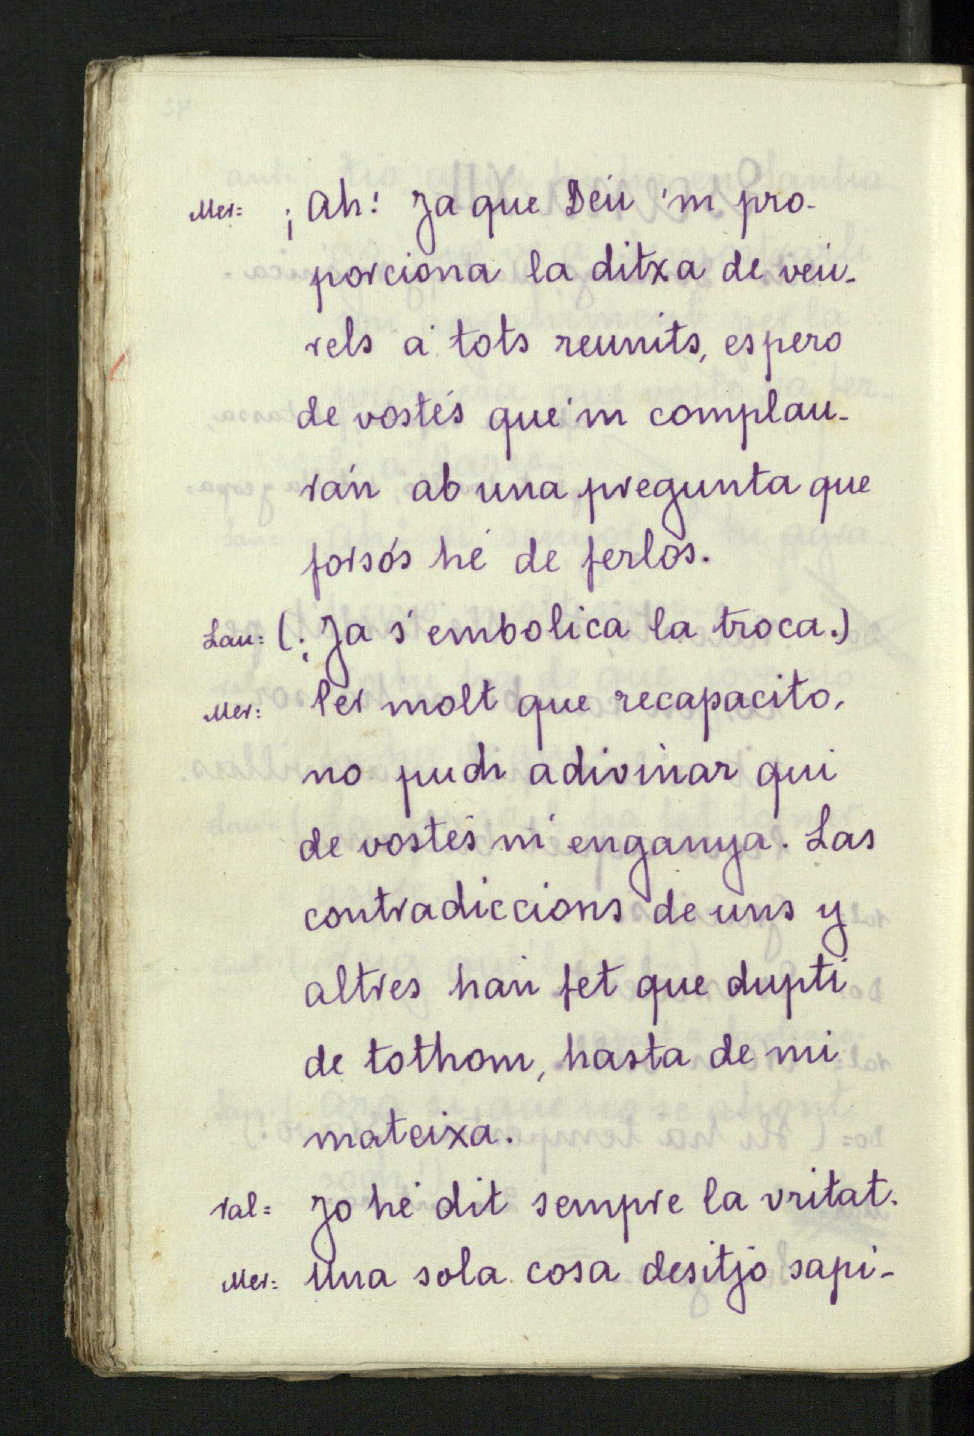 Mer= ¡Ah! Ja que Déu 'm pro-
porciona la ditxa de veu-
rels á tots reunits, espero
de vostés que'm complau-
rán ab una pregunta que
forsós hé de ferlos.
Lau: (¡Ja s'embolica la troca.)
Mer: Per molt que recapacito,
no puch adivinar qui
de vostés m'enganya. Las
contradiccions de uns y
altres han fet que dupti
de tothom, hasta de mi
mateixa.
Val= Jo hé dit sempre la vritat.
Mer: Una sola cosa desitjo sapi-